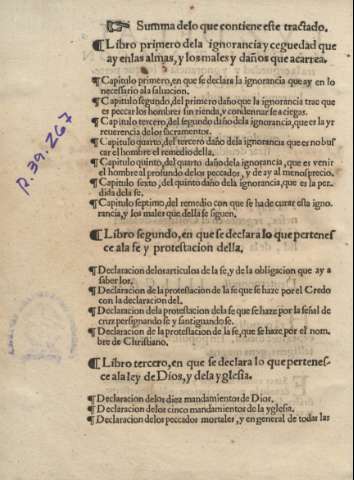 ☞ Summa delo que contiene este tractado.
¶ Libro primero dela ignorancia y ceguedad que
ay en las almas, y los males y daños que acarrea.
¶ Capitulo primero, en que se declara la ignorancia que ay en lo
necessario ala saluacion.
¶ Capitulo segundo, del primero daño que la ignorancia trae que
es peccar los hombres sin rienda, y condennarse a ciegas.
¶ Capitulo tercero, del segundo daño dela ignorancia, que es la yr
reuerencia delos sacramentos.
¶ Capitulo quarto, del tercero daño dela ignorancia que es no bus
car el hombre el remedio della.
¶ Capitulo quinto, del quarto daño dela ignorancia, que es venir
el hombre al profundo delos peccados, y de ay al menosprecio.
¶ Capitulo sexto, del quinto daño dela ignorancia, que es la per-
dida dela fe.
¶ Capitulo septimo, del remedio con que se ha de curar esta igno
rancia, y los males que della se siguen.
¶ Libro segundo, en que se declara lo que pertenes
ce ala fe y protestacion della.
¶ Declaracion delos articulos de la fe, y de la obligacion que ay a
saber los.
¶ Declaracion de la protestacion de la fe que se haze por el Credo
con la declaracion del.
¶ Declaracion dela protestacion dela fe que se haze por la señal de
cruz persignando se y santiguando se.
¶ Declaracion de la protestacion de la fe, que se haze por el nom.
bre de Christiano.
¶ Libro tercero, en que se declara lo que pertenes-
ce ala ley de Dios, y dela yglesia.
¶ Declaracion delos diez mandamientos de Dios.
¶ Declaracion delos cinco mandamientos de la yglesia.
¶ Declaracion delos peccados mortales, y en general de todas las
R.39.267